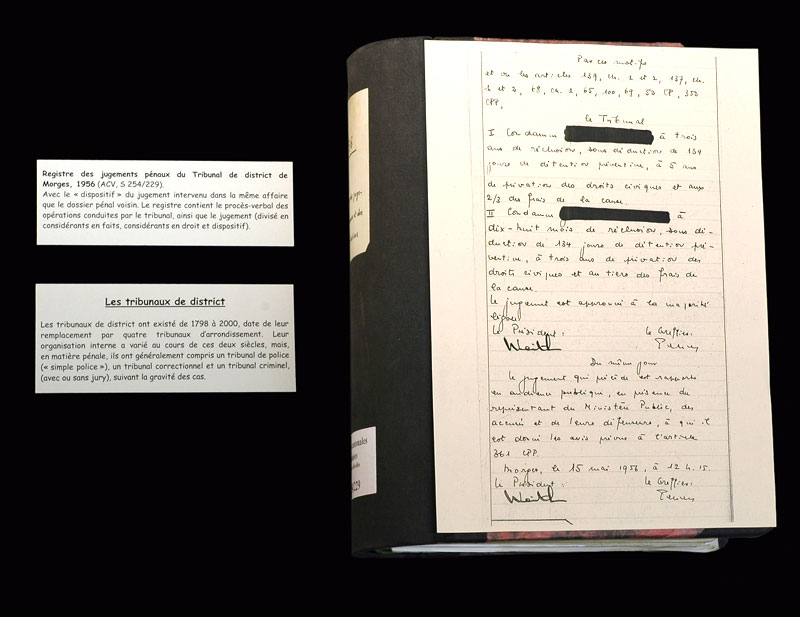 Registre des jugements pénaux du Tribunal de district de
Morges, 1956 (ACV, S 254/229).
Avec le « dispositif » du jugement intervenu dans la même affaire
que le dossier pénal voisin. Le registre contient le procès-verbal des
opérations conduites par le tribunal, ainsi que le jugement (divisé en
considérants en faits, considérants en droit et dispositif).
Les tribunaux de district
Les tribunaux de district ont existé de 1798 à 2000, date de leur
remplacement par quatre tribunaux d'arrondissement. Leur
organisation interne a varié au cours de ces deux siècles, mais,
en matière pénale, ils ont généralement compris un tribunal de police
(« simple police »), un tribunal correctionnel et un tribunal criminel,
(avec ou sans jury), suivant la gravité des cas.
Par ces motifs
et vu les articles 139, ch. 1 et 2, 137, ch.
1 et 2, 68, ch. 1, 65, 100, 69, 50 CP, 350
CPP,
le Tribunal
I Condamne à trois
ans de réclusion, sous déduction de 134
jours de détention préventive, à 5 ans
de privation des droits civiques et aux
2/3 des frais de la cause.
II Condamne à
dix-huit mois de réclusion, sous dé-
duction de 134 jours de détention pré-
ventive, à trois ans de privation des
droits civiques et au tiers des frais de
la cause.
Le jugement est approuvé à la majorité
légale
Le Président : Le Greffier:
Du même jour
Le jugement qui précède est rapporté
en audience publique, en présence du
représentant du Ministère Public, des
accusés et de leurs défenseurs, à qui il
est donné les avis prévus à l'article
361 CPP.
Morges, le 15 mai 1956, à 12 h. 15.
Le Président : Le Greffier: